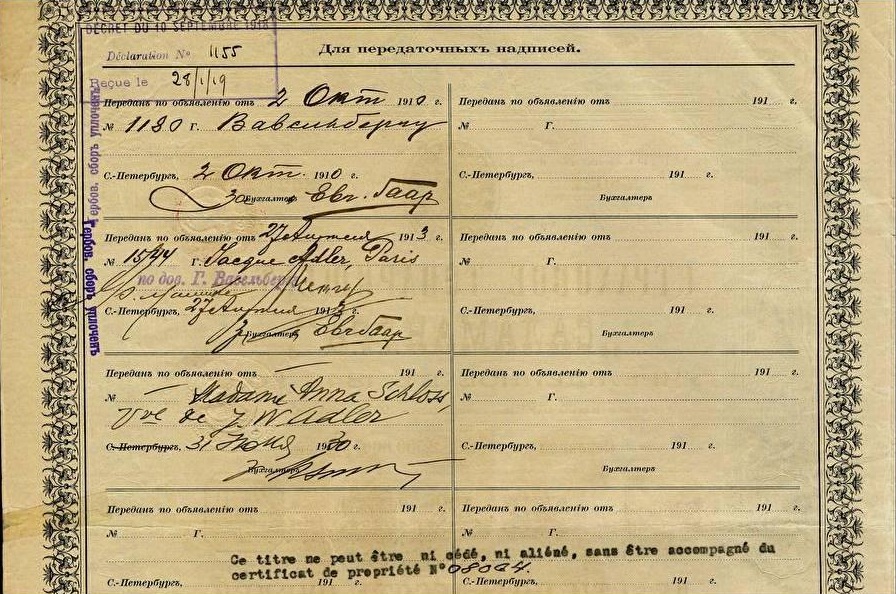 DÉCRET DU 10 SEPTEMBRE 1918
Déclaration № 1155
Reçue le 28/1/19
Для передаточныхъ надписей.
Гербов. сборъ уплоченъ
Гербов. сборъ уплоченъ
Переданъ по объявленію отъ 2 Окт 1910 г.
№ 1180 Г. Вавельбергу
С.-Петербургъ, 2 Окт. 1910 г.
За Бухгалтеръ Евг. Гаар
Переданъ по объявленію отъ 27 Апрѣля 1913 г.
№ 1544 Г. Jacque Adler Paris
по дов. Г. Вавельберга
С.-Петербургъ, 27 Апрѣля 1913 г.
Бухгалтеръ Евг Гаар
Переданъ по объявленію отъ — 191 г.
№ — Madame Anna Schloss,
Vve de J. W Adler
С.-Петербургъ, 31 1930 г.
Бухгалтеръ
Переданъ по объявленію отъ 191 г.
№ Г.
С.-Петербургъ, 191 г.
Переданъ по объявленію отъ 191 г.
№ Г.
С.-Петербургъ, 191 г.
Бухгалтеръ
Переданъ по объявленію отъ 191 г.
№ Г.
С.-Петербургъ, 191 г.
Бухгалтеръ
Переданъ по объявленію отъ 191 г.
№ Г.
С.-Петербургъ, 191 г.
Бухгалтеръ
Переданъ по объявленію отъ 191 г.
№ Г.
С.-Петербургъ, 191 г.
Ce titre ne peut être ni cédé, ni aliéné, sans être accompagné du
certificat de propriété N° 08094.